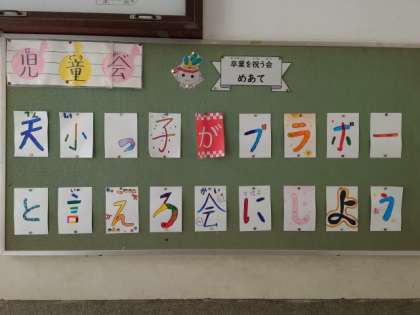 児童会
卒業を祝う会
めあて
天小っ子がブラボー
と言えろ会にしよう